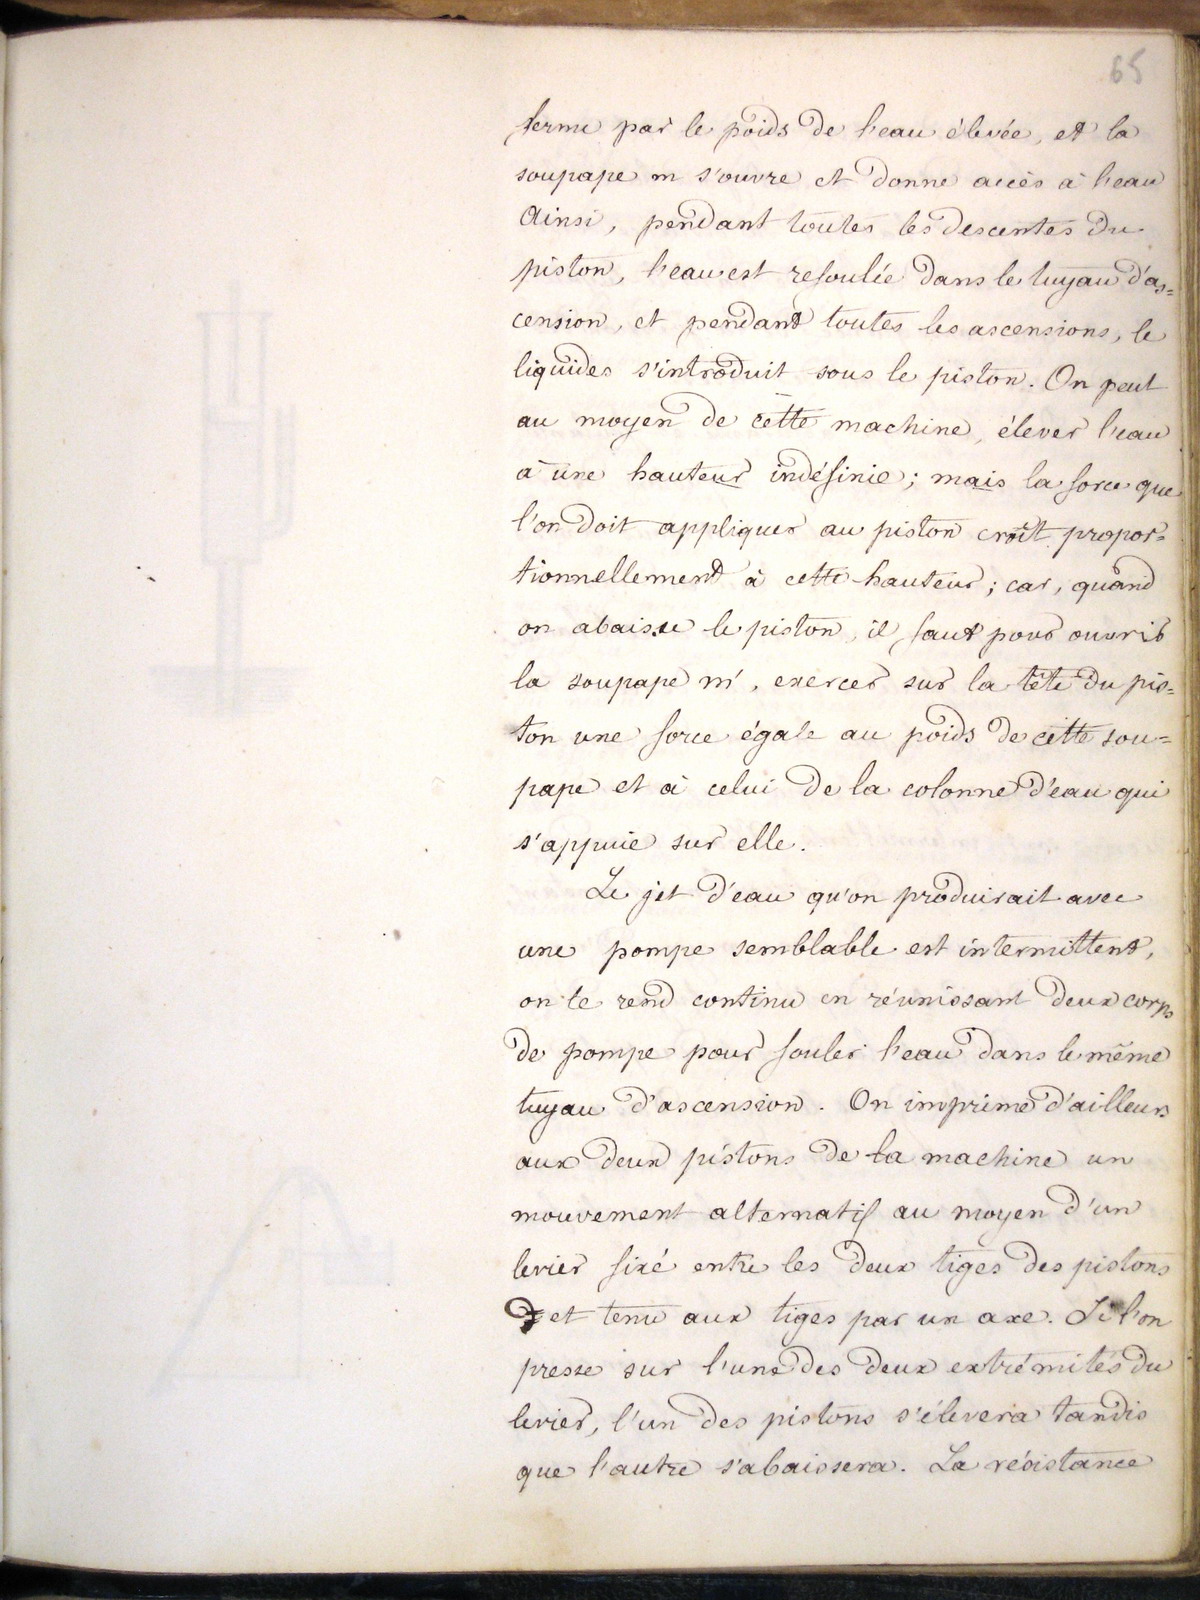 65
ferme par le poids de l'eau élevée, et la
soupape m s'ouvre et donne accès à l'eau
Ainsi, pendant toutes les descentes du
piston, l'eau est refoulée dans le tuyau d'as=
cension, et pendant toutes les ascensions, le
liquides s'introduit sous le piston. On peut
au moyen de cette machine, élever l'eau
à une hauteur indéfinie ; mais la force que
l'on doit appliquer au piston croît propor=
tionnellement à cette hauteur ; car, quand
on abaisse le piston, il faut pour ouvrir
la soupape m', exercer sur la tête du pis=
ton une force égale au poids de cette sou=
pape et à celui de la colonne d'eau qui
s'appuie sur elle.
Le jet d'eau qu'on produirait avec
une pompe semblable est intermittent,
on le rend continu en réunissant deux corps
de pompe pour fouler l'eau dans le même
tuyau d'ascension. On imprime d'ailleurs
aux deux pistons de la machine un
mouvement alternatif au moyen d'un
levier fixé entre les deux tiges des pistons
et tenu aux tiges par un axe. Si l'on
presse sur l'une des deux extrémités du
levier, l'un des pistons s'élevera tandis
que l'autre s'abaissera. La résistance